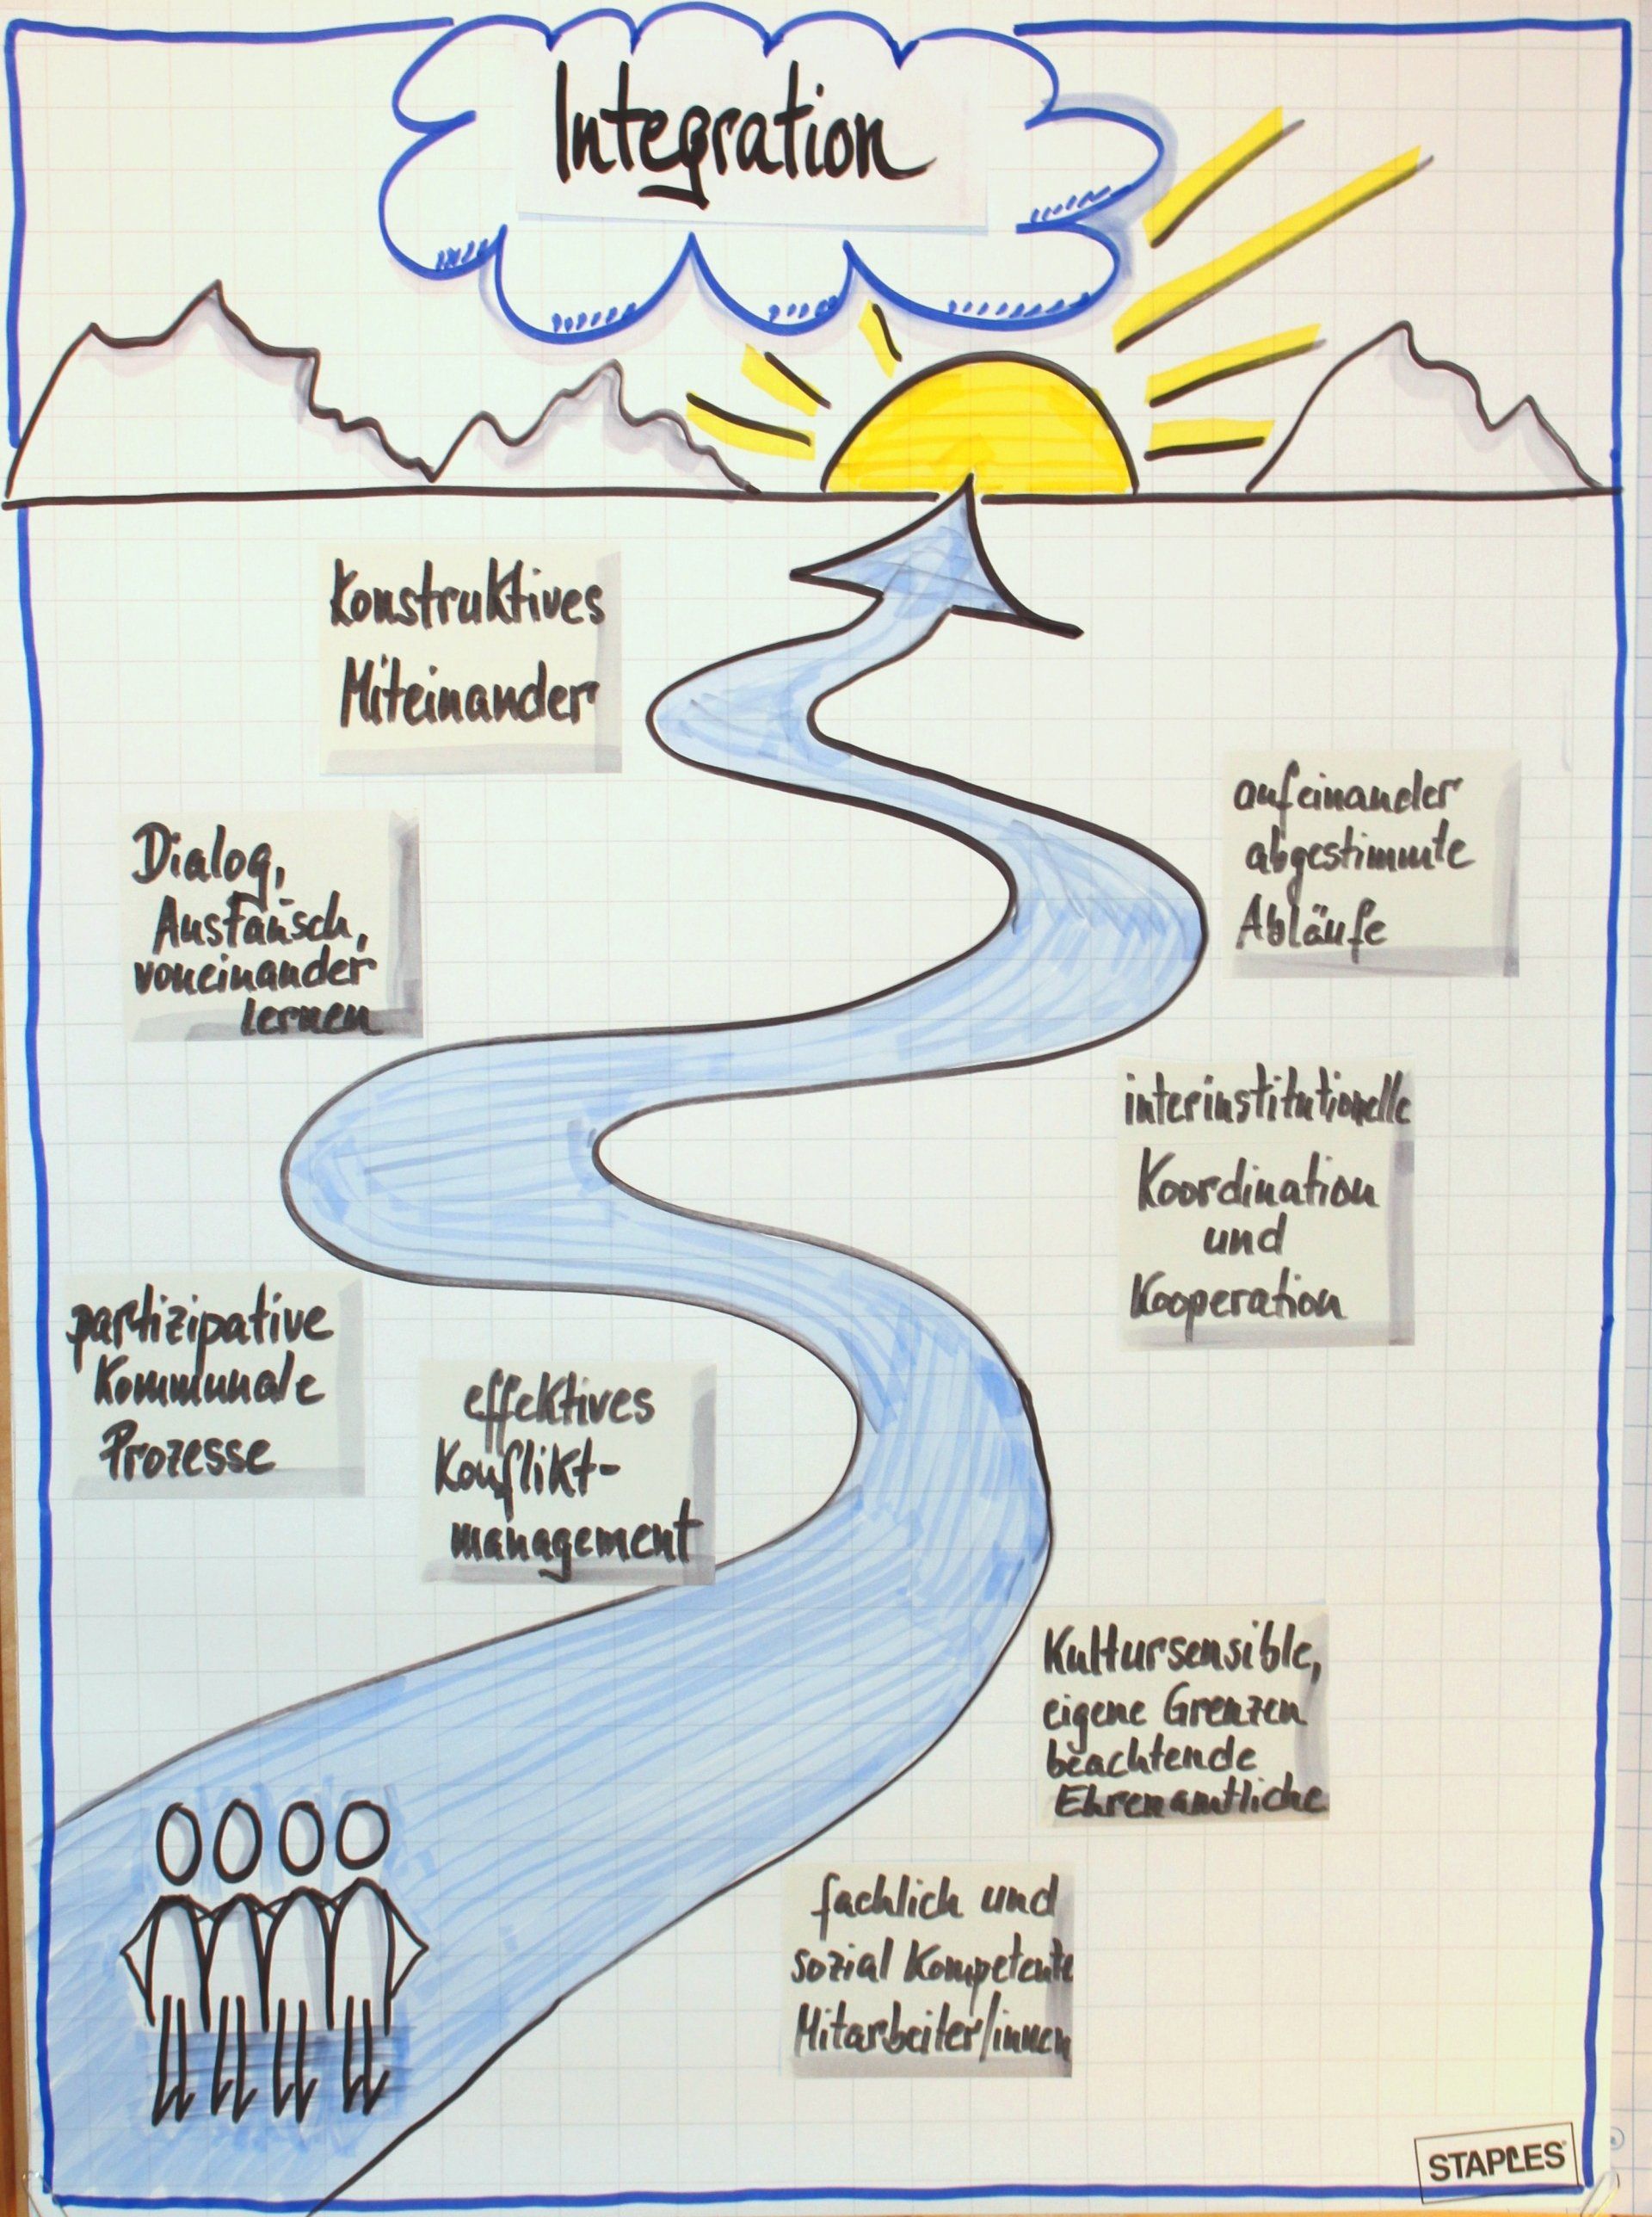 Integration
Konstruktives
Miteinander
aufeinander
abgestimmte
Abläufe
Dialog,
Austausch,
voneinander
lernen
interinstitutionelle
Koordination
und
Kooperation
partizipative
Kommunale
Prozesse
effektives
Konflikt-
management
Kultursensible,
eigene Grenzen
beachtende
Ehrenamtliche
fachlich und
sozial Kompetente
Mitarbeiter/innen
STAPLES